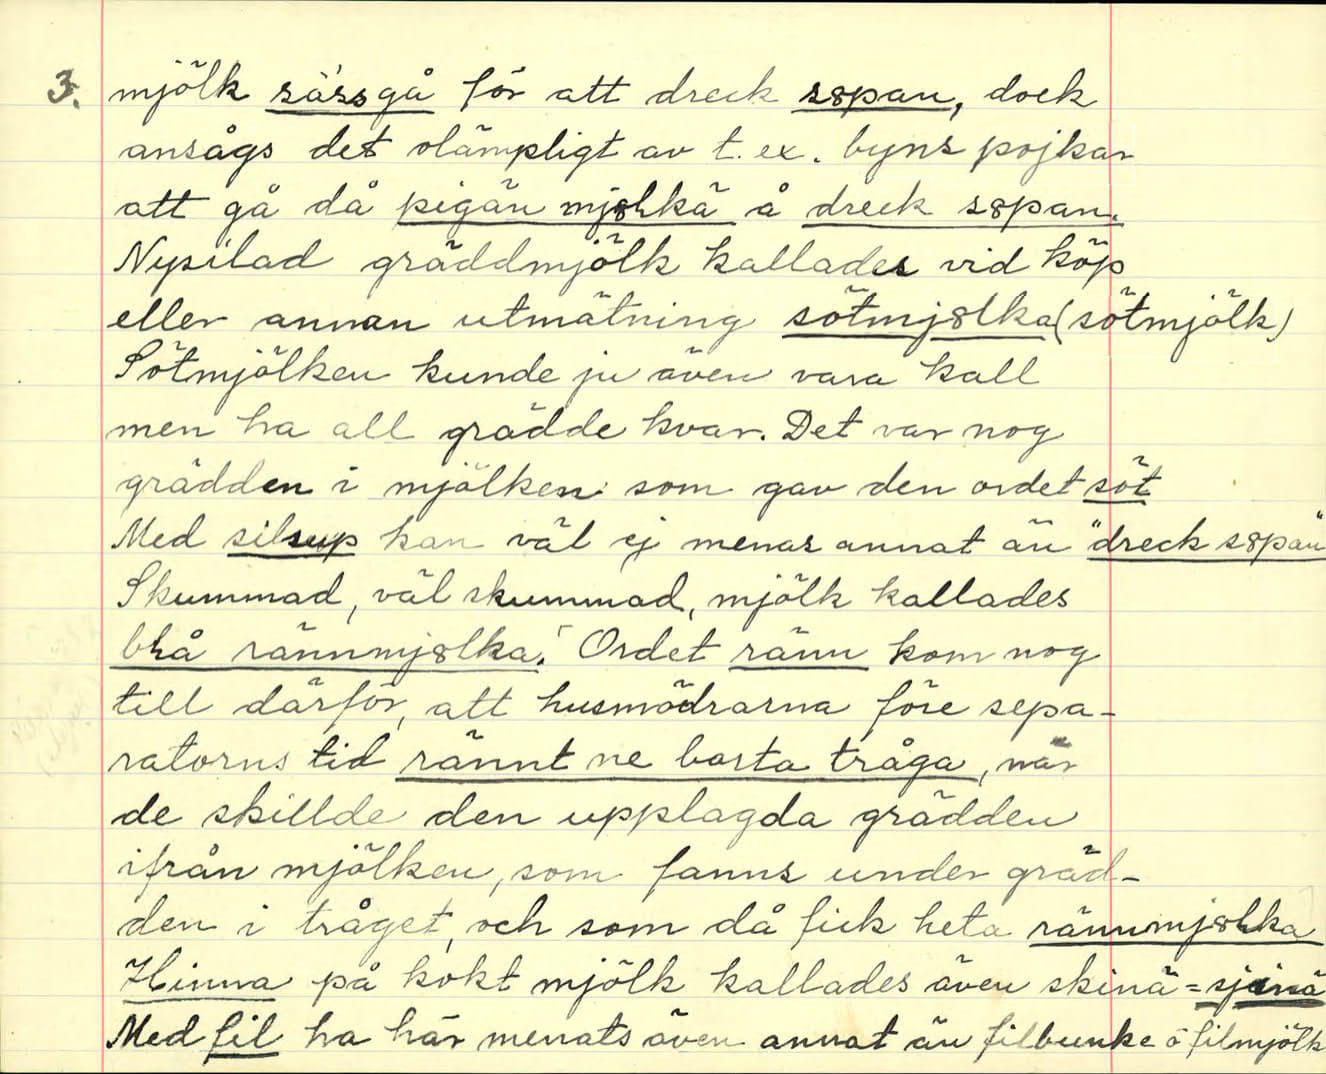 3. mjölk säss gå för att dreck s8pan, dock
ansågs det olämpligt av t. ex. byns pojkar
att gå då pigän mj8hkä å dreck s8pan.
Nysilad gräddmjölk kallades vid köp
eller annan utmätning sötmj8lka (sötmjölk)
Sötmjölken kunde ju även vara kall
men ha all grädde kvar. Det var nog
grädden i mjölken som gav den ordet söt
Med silsup kan väl ej menas annat än "dreck s8pan"
Skummad, väl skummad, mjölk kallades
blå rännmj8lka. Ordet ränn kom nog
till därför, att husmödrarna före sepa-
ratorns tid rännt ne barta tråga, när
de skillde den upplagda grädden
ifrån mjölken, som fanns under gräd-
den i tråget, och som då fick heta rännmj8hka
Hinna på kokt mjölk kallades även skinä = sjinä
Med fil ha här menats även annat än filbunke o filmjölk